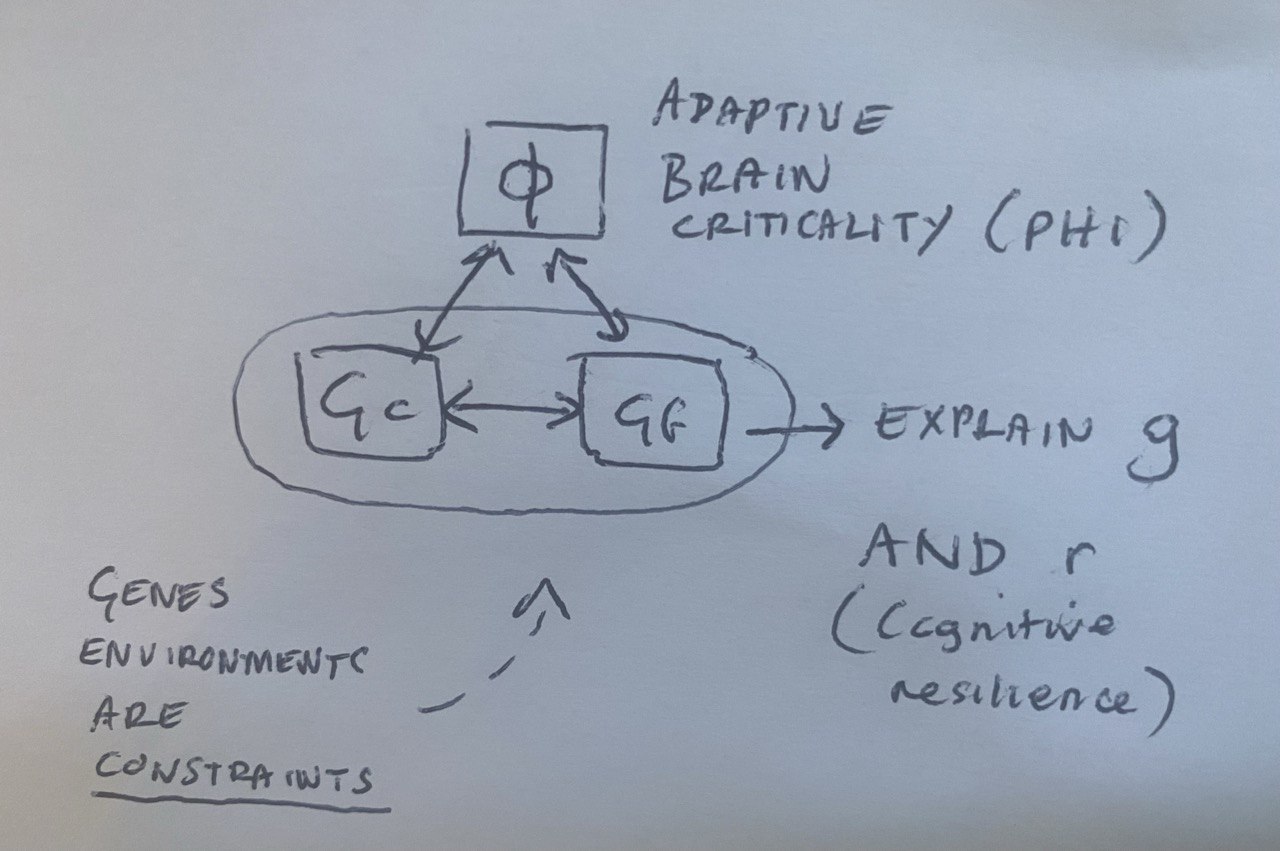 ADAPTIVE
BRAIN
CRITICALITY (PHI)
Φ
Gc
GF
EXPLAIN g
AND r
(Cognitive
resilience)
GENES
ENVIRONMENTS
ARE
CONSTRAINTS